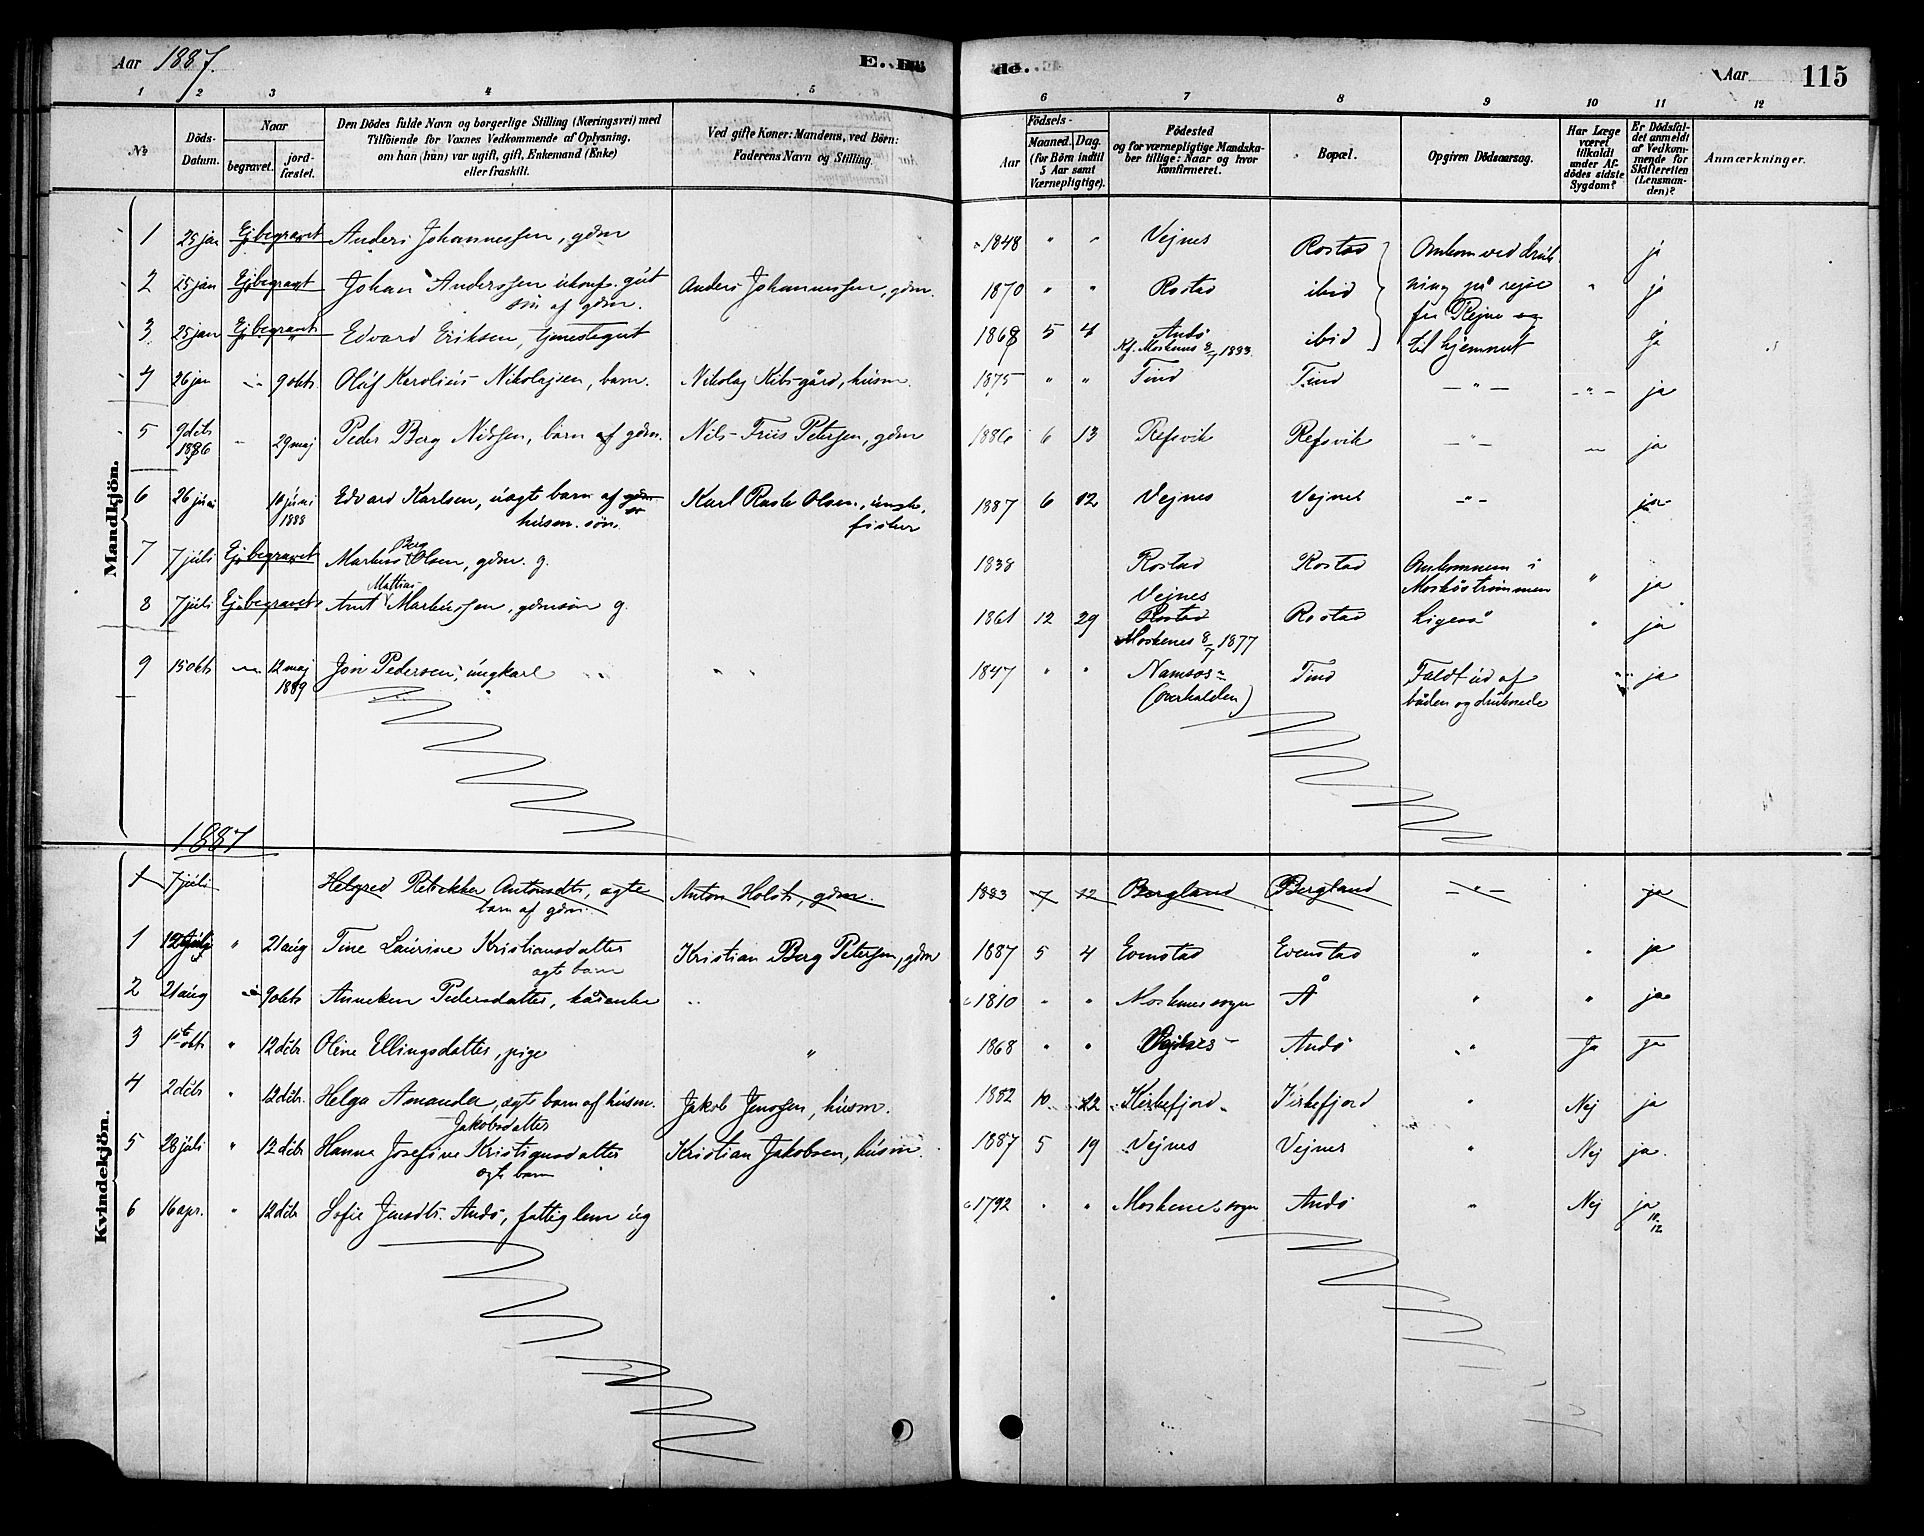 Aar 1887. E. Dö
de. Aar 115
1 2 3 4 5 6 7 8 9 10 11 12
№ Döds-Datum. Naar begravet. jord-fæstet. Den Dödes fulde Navn og borgerlige Stilling (Næringsvei) med Tilföiende for Voxnes Vedkommende af Oplysning. om han (hun) var ugift, gift, Enkemand (Enke) eller fraskilt. Ved gifte Koner: Mandens, ved Börn: Faderens Navn og Stilling.
Födsels- Aar Maaned. Dag. (for Börn indtil 5 Aar samt Værnepligtige). Födested og for værnepligtige Mandskaber tillige: Naar og hvor konfirmeret. Bopæl. Opgiven Dödsaarsag. Har Læge været tilkaldt under Afdödes sidste Sygdom? Er Dödsfaldet anmeldt af Vedkommende for Skifteretten (Lensmanden)? Anmærkninger.
Mandkjön.
1 25 jan Ej begravet Anders Johannessen, gdm 1848 " " Vejnes Rostad Omkom ved druk- ja
2 25 jan Ej begravet Johan Anderssen ukonf. gut Anders Johannessen, gdm. 1870 " " Rostad ibid ning på rejse " ja
søn af gdm. fra Rejne
3 25 jan Ej begravet Edvard Eriksen, tjenestegut 1868 5 4 Andø ibid til hjemmet ja
Kf. Moskenes 8/7 1883.
4 26 jan - 9 okt Oluf Karolius Nikolajsen, barn. Nikolaj Kibsgård, husm. 1875 " " Tind Tind - " - - " - ja
5 9 dcb 1886 - 29 maj Peder Berg Nilssen, barn af gdm. Nils Friis Petersen, gdm 1886 6 13 Refsvik Refsvik - " - - ja
6 26 juni 10 juni 1888 Edvard Karlsen, uægte barn af gdm Karl Olsen, ungk. 1887 6 12 Vejnes Vejnes - " - ja
husm. søn. fisker
7 7 juli Ej begravet Markus Berg Olsen, gdm. g. 1838 Rostad Rostad Omkommen i " ja
Moskøstrømmen
8 7 juli Ej begravet Arnt Mattias Markussen, gdmsøn g. 1861 12 29 Vejnes Rostad Rostad Ligeså " ja
Moskenes 8/7 1877
9 15 okt - 12 maj 1889 Jon Pedersen, ungkarl " " 1847 " " Namsos Tind Faldt ud af " ja
(Overhalden) båden og druknede
Kvindekjön.
1887
1 7 juli Helgred Rebekka Antonsdtr, ægte Anton Holst, gdm. 1883 7 12 Bergland Bergland - " - ja
barn af gdm.
1 12 july " 21 aug Tine Laurine Kristiansdatter Kristian Berg Petersen, gdm 1887 5 4 Evenstad Evenstad " " ja
ægte barn
2 21 aug " 9 okt Anneken Pedersdatter, kårenke " 1810 " " Moskenes sogn Å " " ja
3 1ste okt " 12 dcb Oline Ellingsdatter, pige " 1868 " " Vejnes Andø " Ja ja
4 2 dcb " 12 dcb. Helga Amanda, ægte barn af husm. Jakob Jenssen, husm. 1882 10 12 Kirkefjord Kirkefjord " Nej ja
Jakobsdatter
5 28 juli " 12 dcb Hanna Josefine Kristiansdatter Kristian Jakobsen, husm. 1887 5 19 Vejnes Vejnes " Nej ja.
ægte barn
6 16 apr. " 12 dcb Sofie Jensdtr. Andø, fattiglem ug 1792 " " Moskenes sogn Andø " Nej ja
10/12